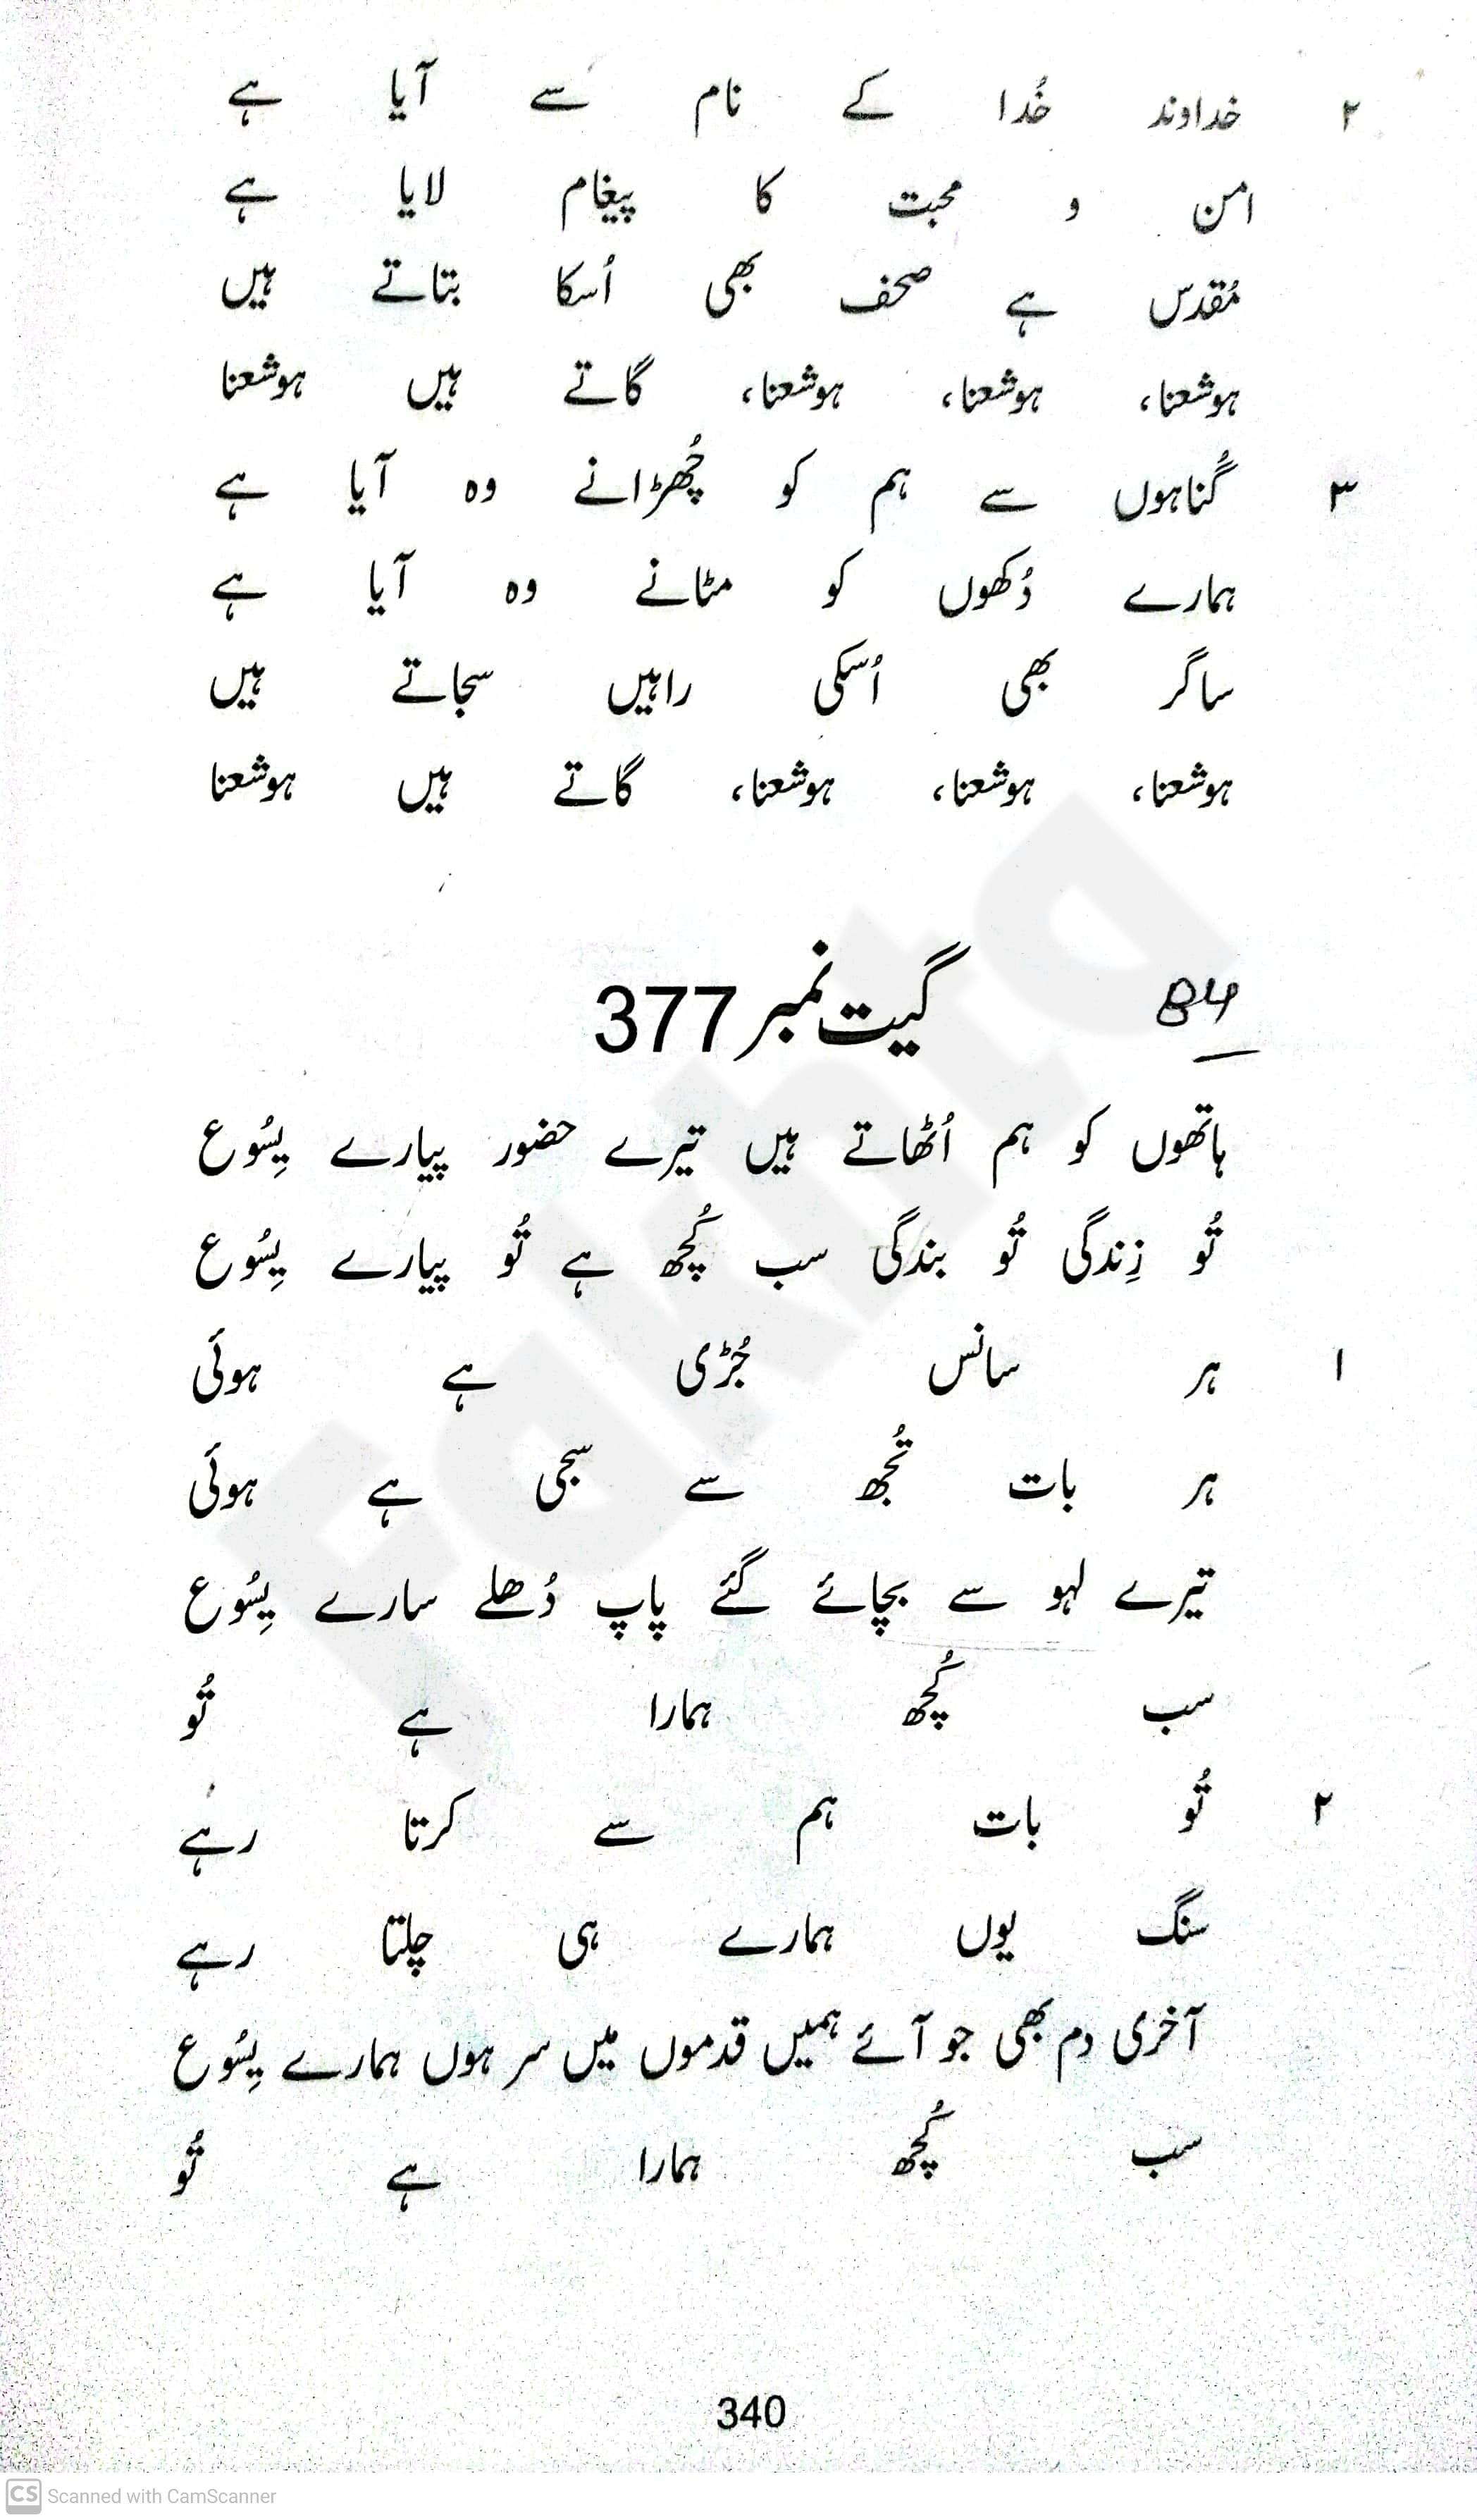 ۲ خداوند خُدا کے نام سے آیا ہے
امن و محبت کا پیغام لایا ہے
مُقدس ہے صحف بھی اُسکا بتاتے ہیں
ہوشعنا، ہوشعنا، ہوشعنا، گاتے ہیں ہوشعنا
۳ گُناہوں سے ہم کو چُھڑانے وہ آیا ہے
ہمارے دُکھوں کو مٹانے وہ آیا ہے
ساگر بھی اُسکی راہیں سجاتے ہیں
ہوشعنا، ہوشعنا، ہوشعنا، گاتے ہیں ہوشعنا
گیت نمبر 377
ہاتھوں کو ہم اُٹھاتے ہیں تیرے حضور پیارے یِسُوع
تُو زِندگی تُو بندگی سب کُچھ ہے تُو پیارے یِسُوع
۱ ہر سانس جُڑی ہے ہوئی
ہر بات تُجھ سے سجی ہے ہوئی
تیرے لہو سے بچائے گئے پاپ دُھلے سارے یِسُوع
سب کُچھ ہمارا ہے تُو
۲ تُو بات ہم سے کرتا رہے
سنگ یوں ہمارے ہی چلتا رہے
آخری دم بھی جو آئے ہمیں قدموں میں سر ہوں ہمارے یِسُوع
سب کُچھ ہمارا ہے تُو
340
Fakhta
CS Scanned with CamScanner